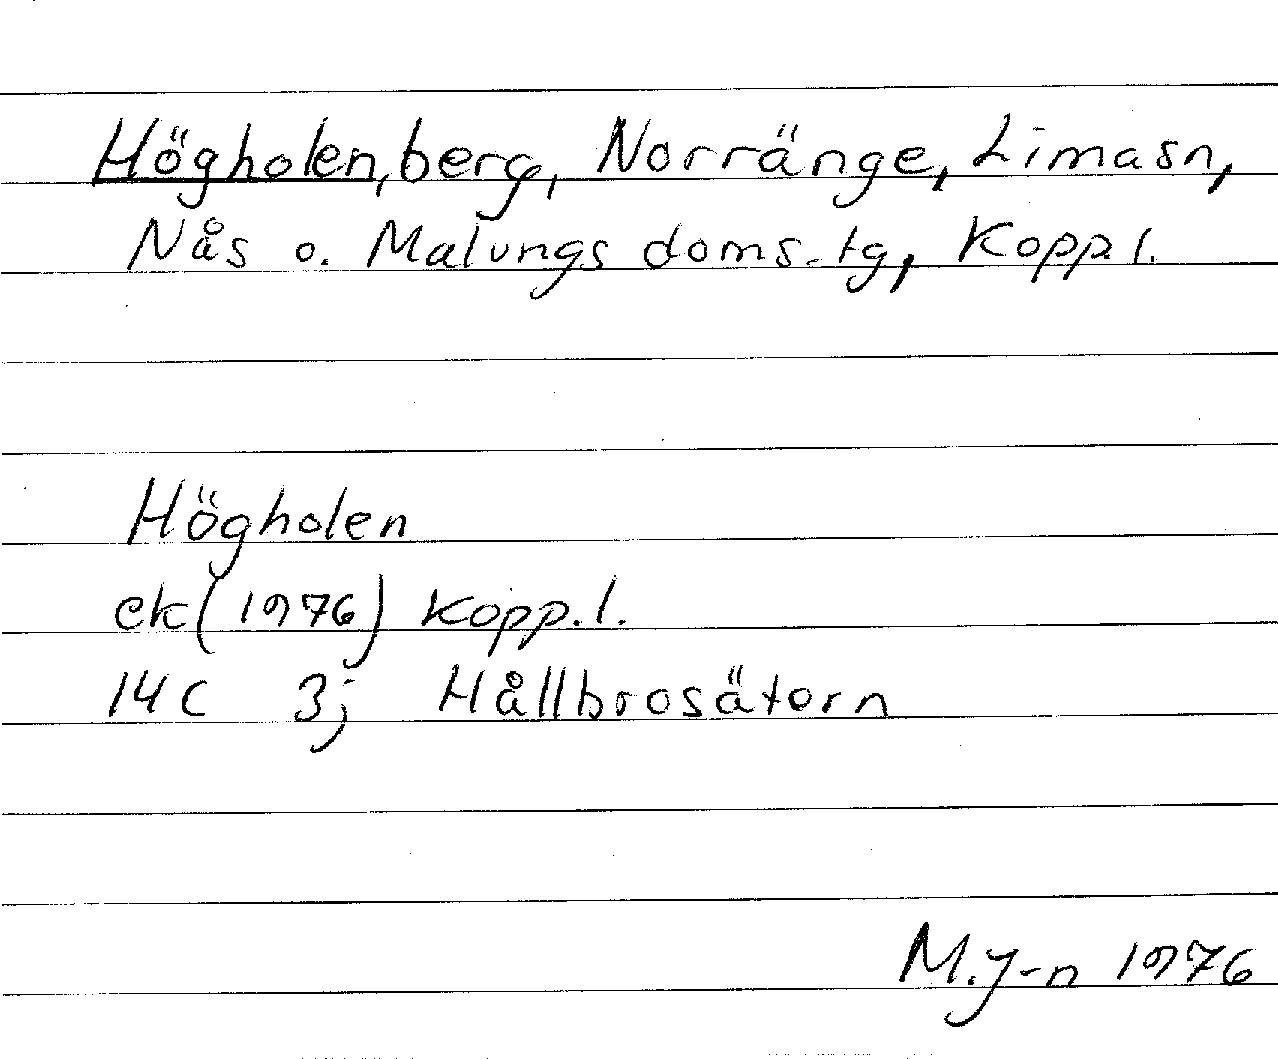 Högholen, berg, Norränge, Lima sn,
Nås o. Malungs doms.tg, Kopp.l.
Högholen
ek (1976) Kopp.l.
14 C 3j Hållbrosätern
M.J-n 1976